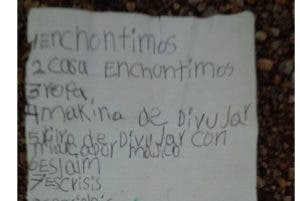 1 enchontimos
2 casa enchontimos
3 ropa
4 makina de Divujar
5 libro de Divujar con
marcador majico
6 Eslaim
7 Escrisis